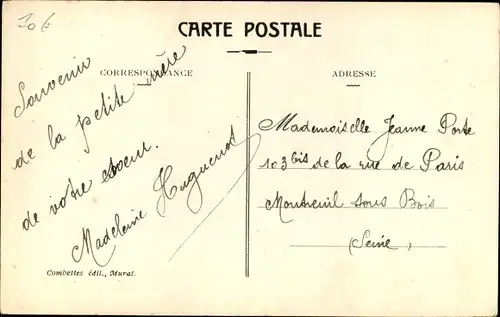 10 f
CARTE POSTALE
CORRESPONDANCE
Souvenir
de la petite mère
de votre coeur.
Madeleine Huguenot
ADRESSE
Mademoiselle Jeanne Porte
103 bis de la rue de Paris
Montreuil sous Bois
(Seine)
Combettes édit., Murat.